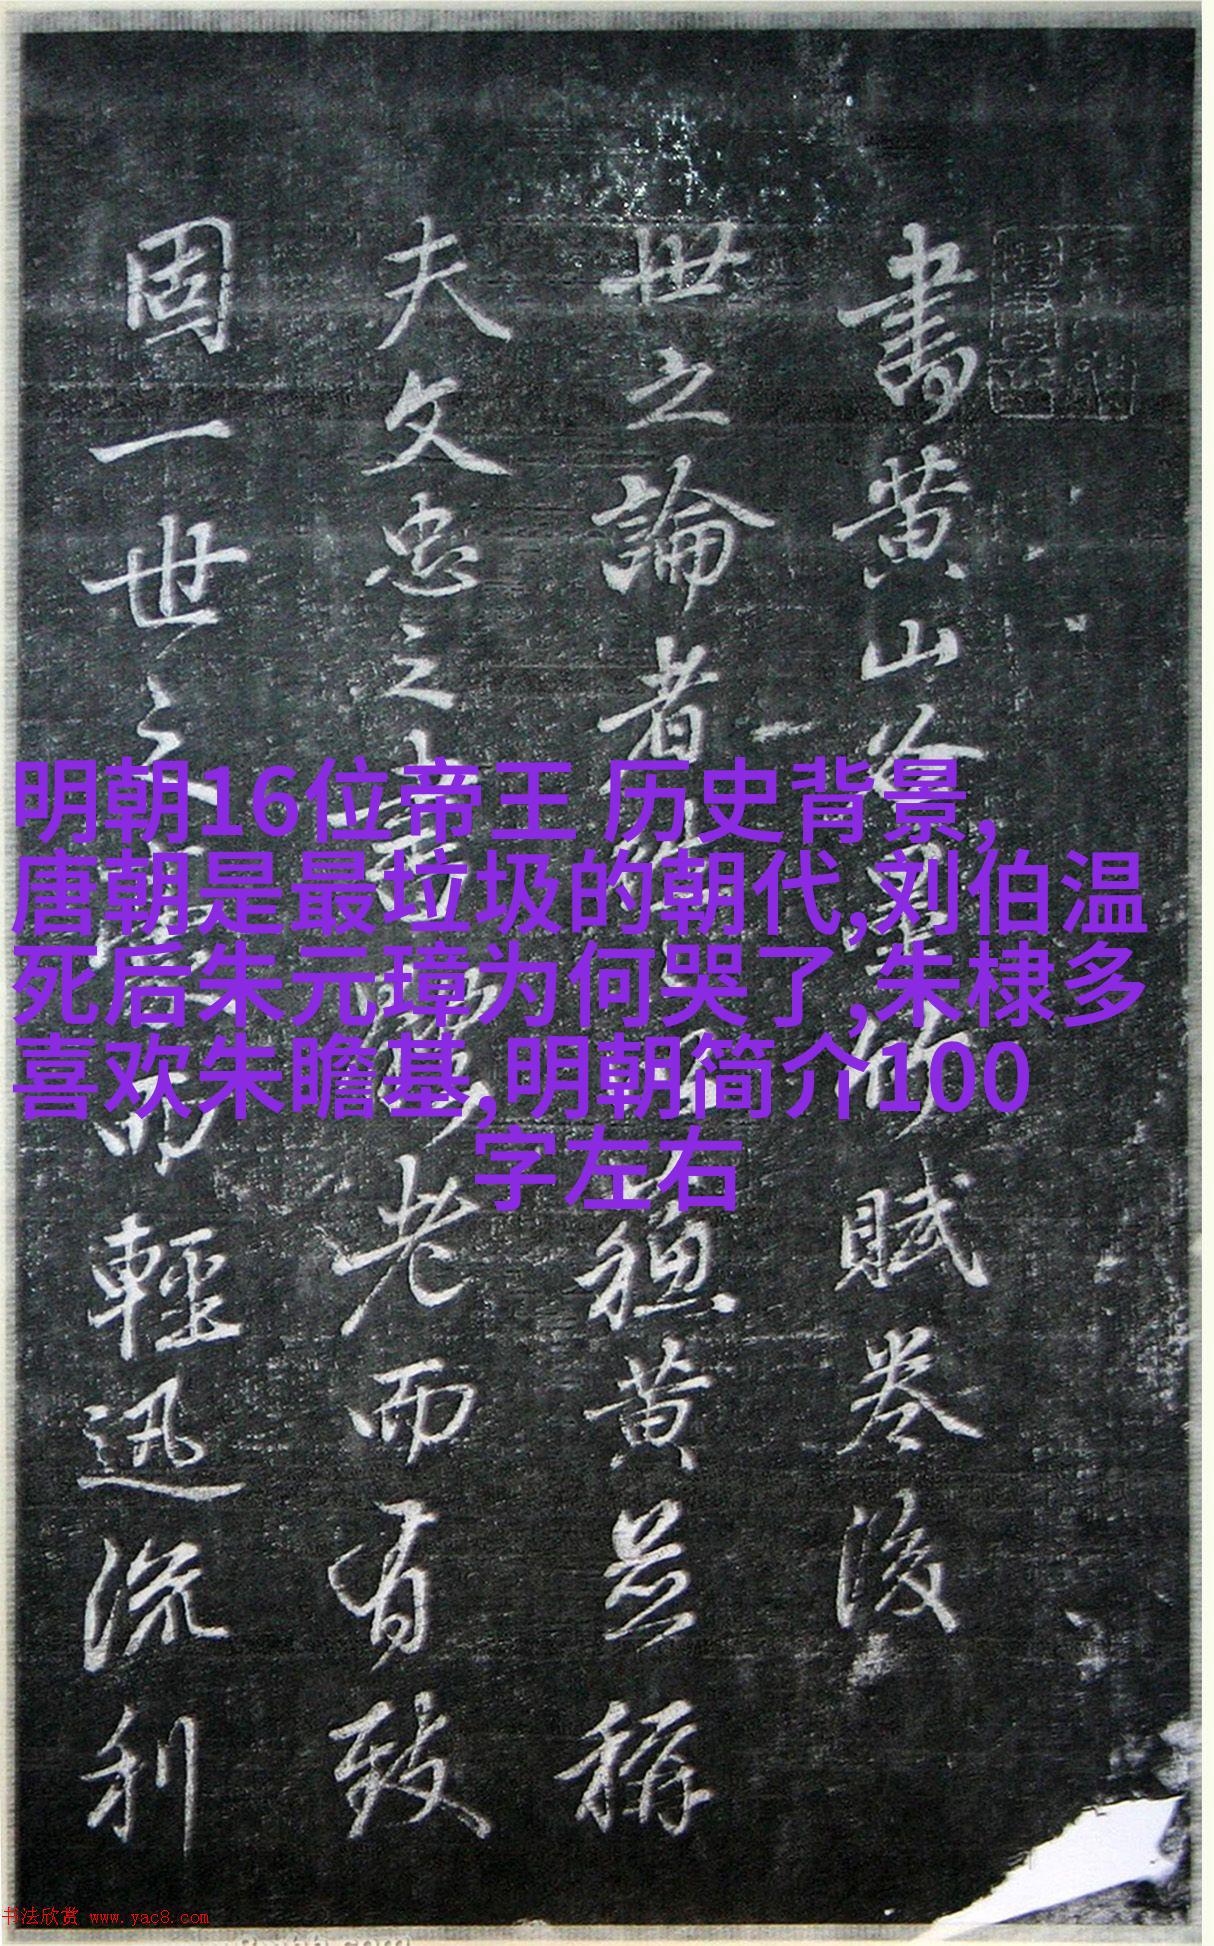 書黄山谷賦卷後
世之論者黄並稱
夫文忠之書老而有致
固一世之而輕迅流利
明朝16位帝王 历史背景,
唐朝是最垃圾的朝代,刘伯温
死后朱元璋为何哭了,朱棣多
喜欢朱瞻基,明朝简介100
字左右
书法欣赏 www.yac8.com